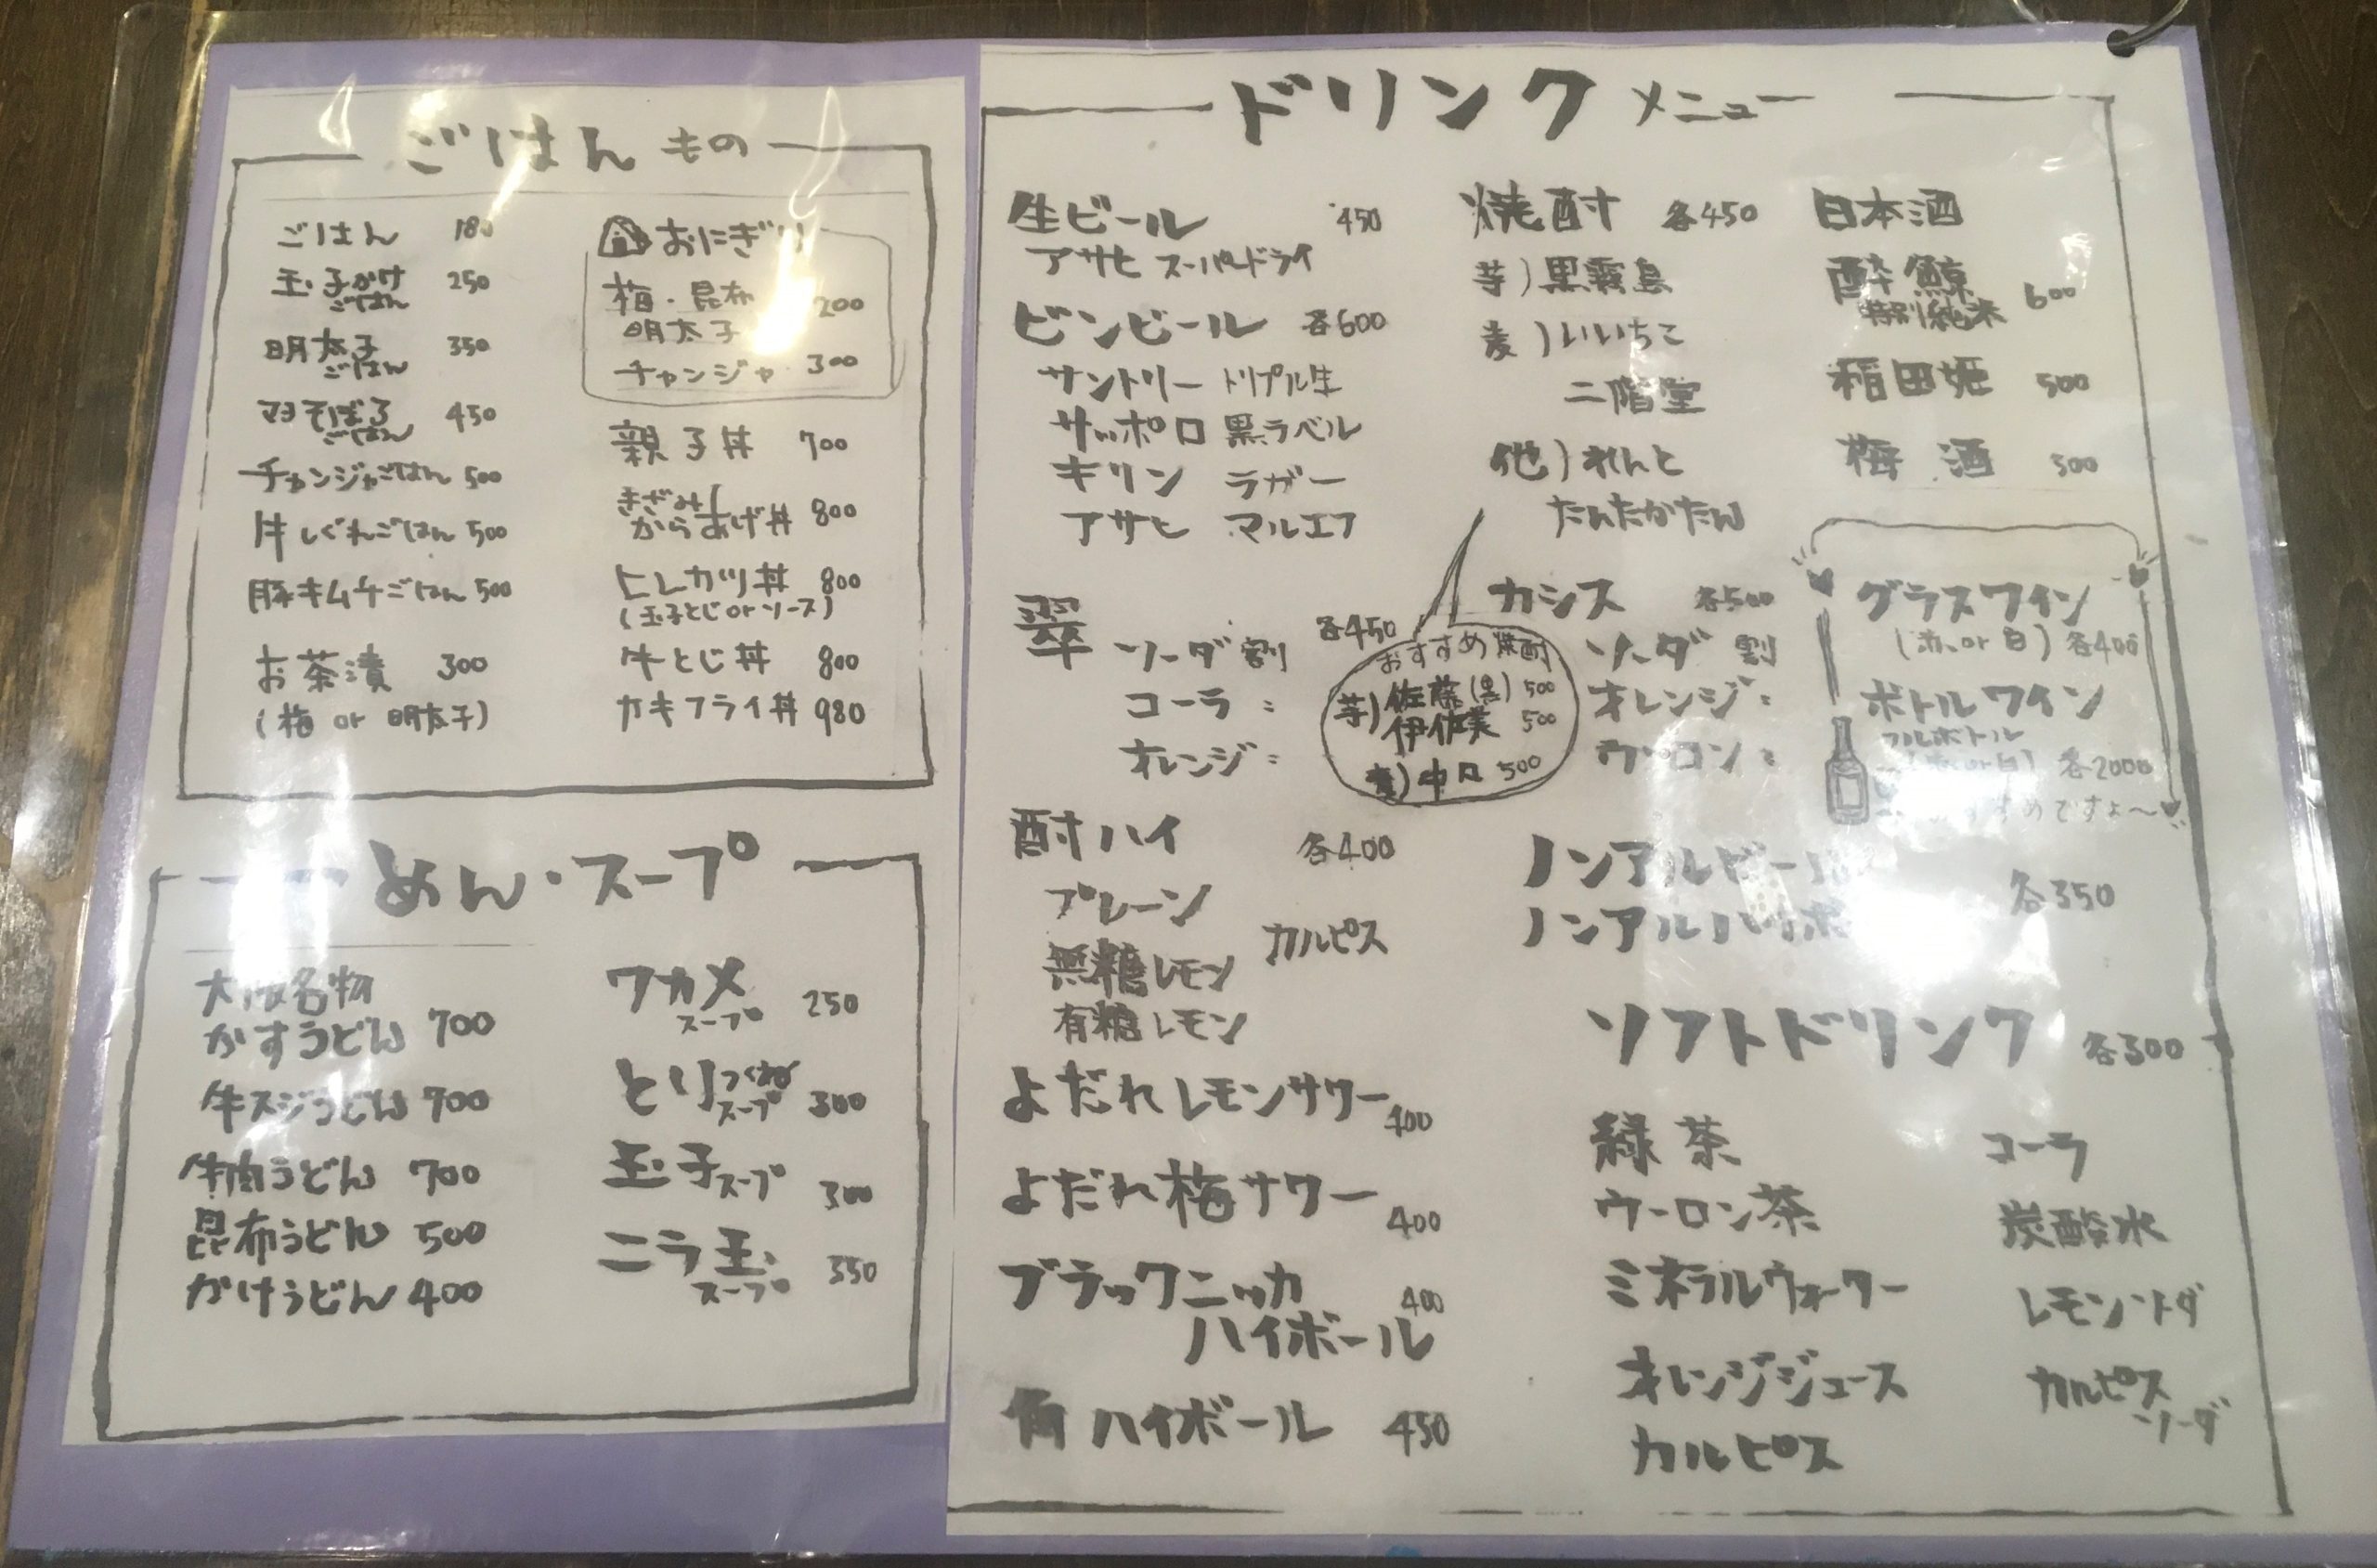 ごはんもの
ごはん 180
玉子かけごはん 250
明太子ごはん 350
マヨそぼろごはん 450
チャンジャごはん 500
牛しぐれごはん 500
豚キムチごはん 500
お茶漬 300
(梅 or 明太子)
おにぎり
梅・昆布
明太子 200
チャンジャ 300
親子丼 700
きざみ
からあげ丼 800
ヒレカツ丼 800
(玉子とじ or ソース)
牛とじ丼 800
カキフライ丼 980
めん・スープ
大阪名物
かすうどん 700
牛スジうどん 700
牛肉うどん 700
昆布うどん 500
かけうどん 400
ワカメスープ 250
とりつくねスープ 300
玉子スープ 300
ニラ玉スープ 350
ドリンクメニュー
生ビール 450
アサヒ スーパードライ
ビンビール 各600
サントリー トリプル生
サッポロ 黒ラベル
キリン ラガー
アサヒ マルエフ
翠 各450
ソーダ割
コーラ 〃
オレンジ 〃
酎ハイ 各400
プレーン
カルピス
無糖レモン
有糖レモン
よだれレモンサワー 400
よだれ梅サワー 400
ブラックニッカ 400
ハイボール
角ハイボール 450
焼酎 各450
芋)黒霧島
麦)いいちこ
二階堂
他)れんと
たんたかたん
おすすめ焼酎
芋)佐藤(黒) 500
伊佐美 500
麦)中々 500
カシス 各500
ソーダ割
オレンジ 〃
ウーロン 〃
日本酒
酔鯨 600
特別純米
稲田姫 500
梅酒 500
グラスワイン
(赤 or 白) 各400
ボトルワイン
フルボトル
(赤 or 白) 各2000
おすすめですよ〜
ノンアルビール 各350
ノンアルハイボ
ソフトドリンク 各300
緑茶
ウーロン茶
ミネラルウォーター
オレンジジュース
カルピス
コーラ
炭酸水
レモンソーダ
カルピスソーダ